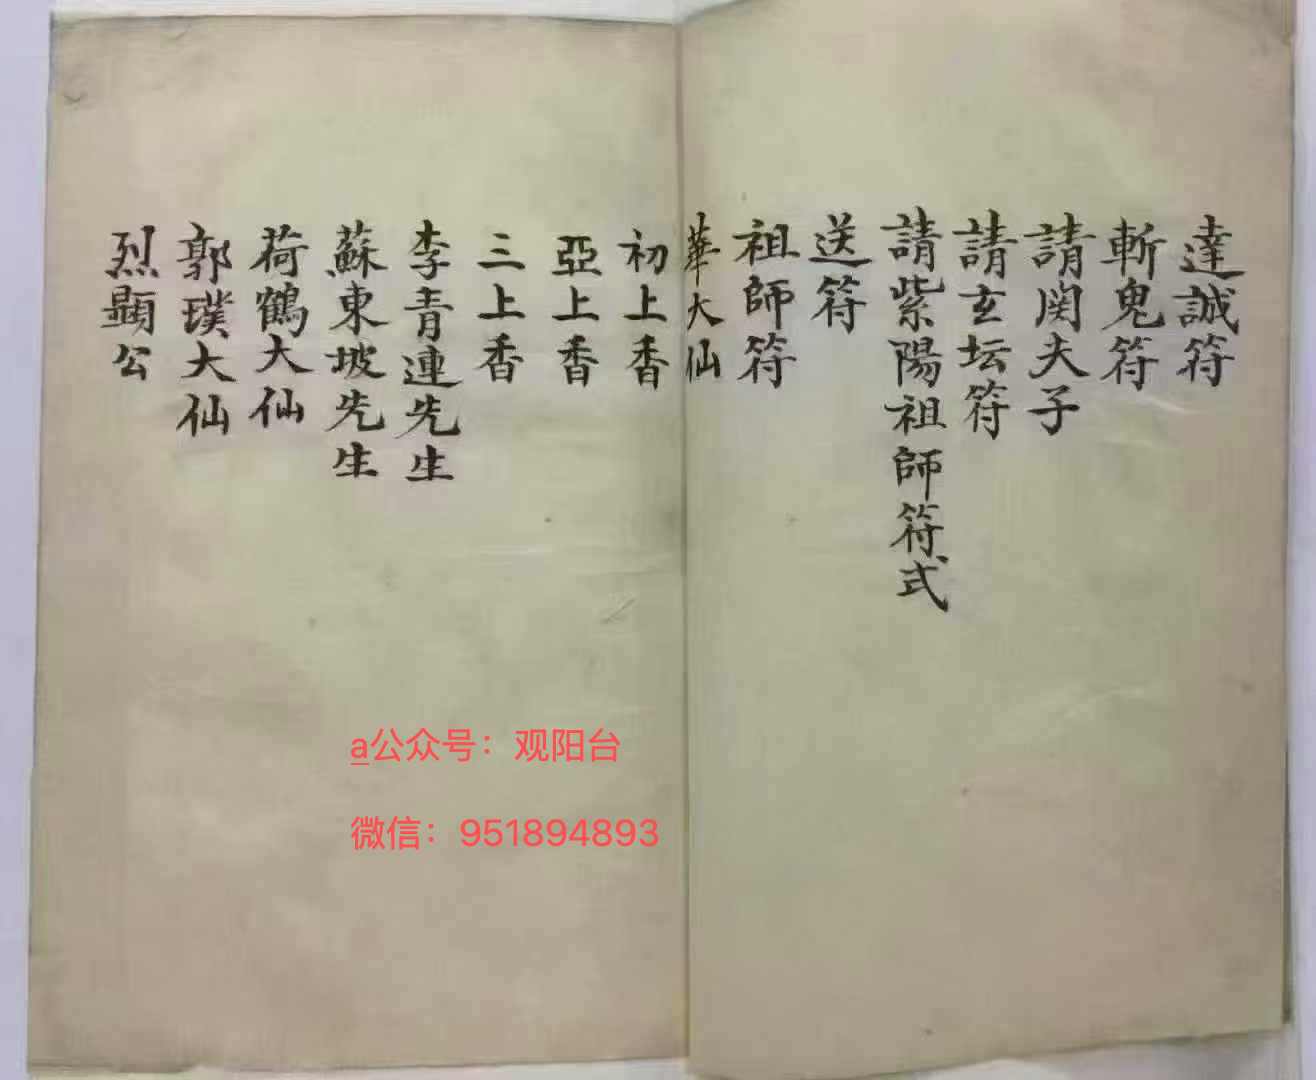 達誠符
斬鬼符
請関夫子
請玄坛符
請紫陽祖師符式
送符
祖師符
華大仙
初上香
亞上香
三上香
李青連先生
蘇東坡先生
荷鶴大仙
郭璞大仙
烈顯公
a公众号：观阳台
微信：951894893